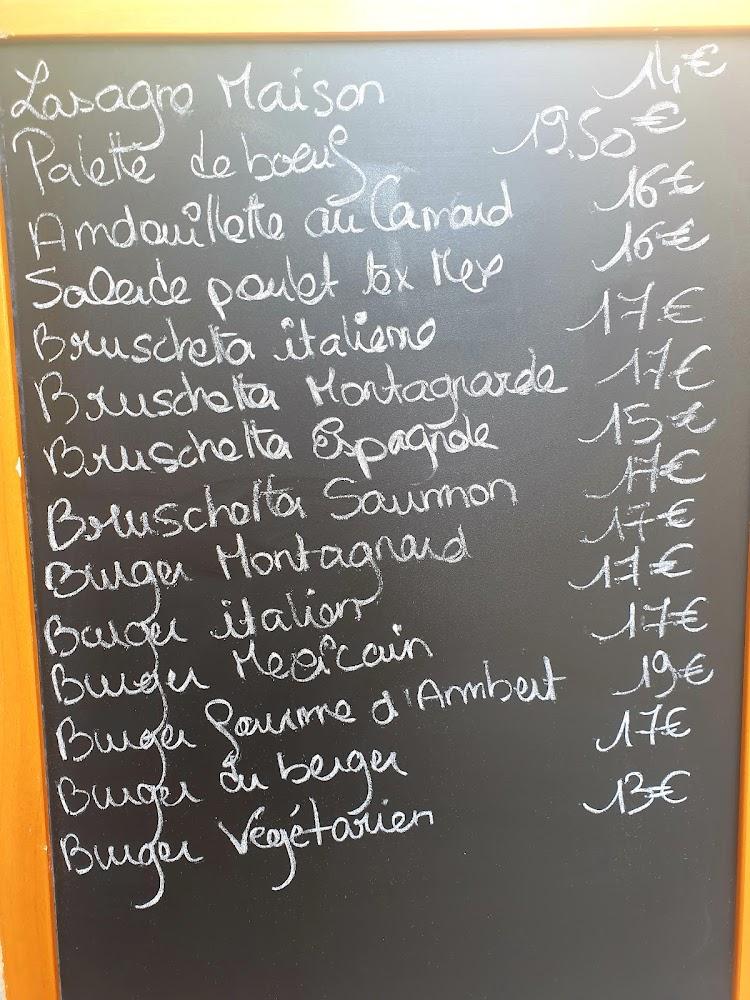 Lasagne Maison 14€
Palette de boeuf 19,50€
Andouillette au Camard 16€
Salade poulet tex Mex 16€
Bruschetta italienne 17€
Bruschetta Montagnarde 17€
Bruschetta Espagnole 15€
Bruschetta Saumon 17€
Burger Montagnard 17€
Burger italien 17€
Burger Mexicain 17€
Burger fourme d'Ambert 19€
Burger du berger 17€
Burger Végétarien 13€